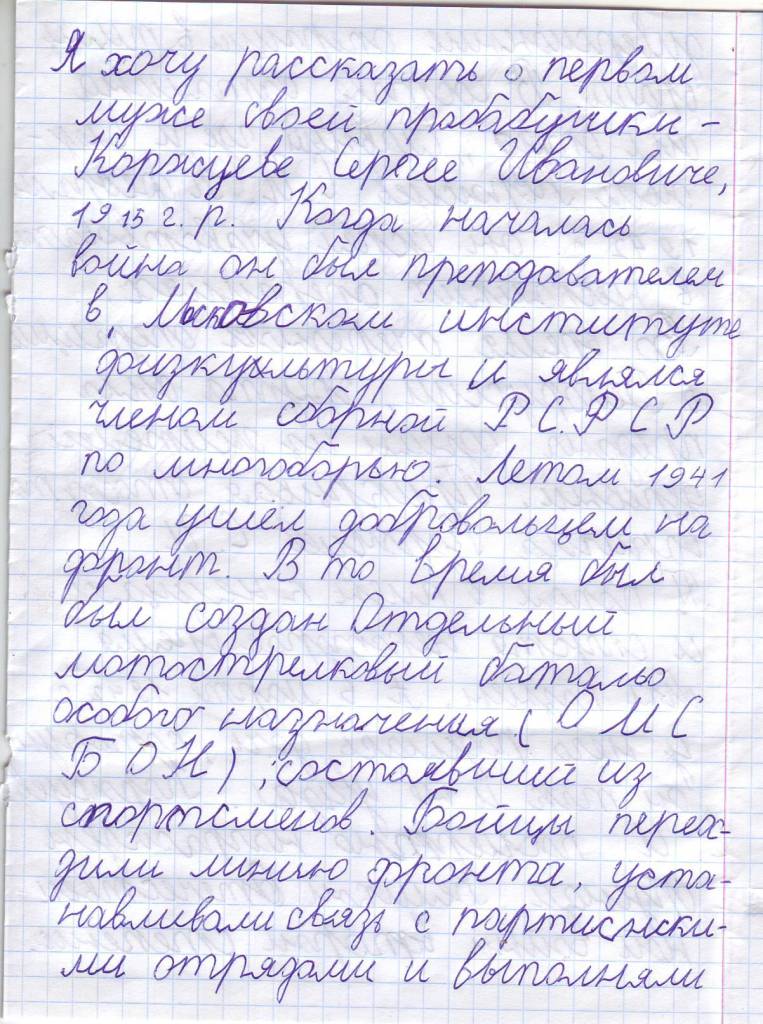 Я хочу рассказать о первом
муже своей прабабушки –
Коржуеве Сергее Ивановиче,
1915 г. р. Когда началась
война он был преподавателем
в Московском институте
физкультуры и являлся
членом сборной РСФСР
по многоборью. Летом 1941
года ушёл добровольцем на
фронт. В то время был
был создан Отдельный
мотострелковый батальо
особого назначения (ОМС
БОН), состоявший из
спортсменов. Бойцы перех-
дили линию фронта, уста-
навливали связь с партизански-
ми отрядами и выполняли